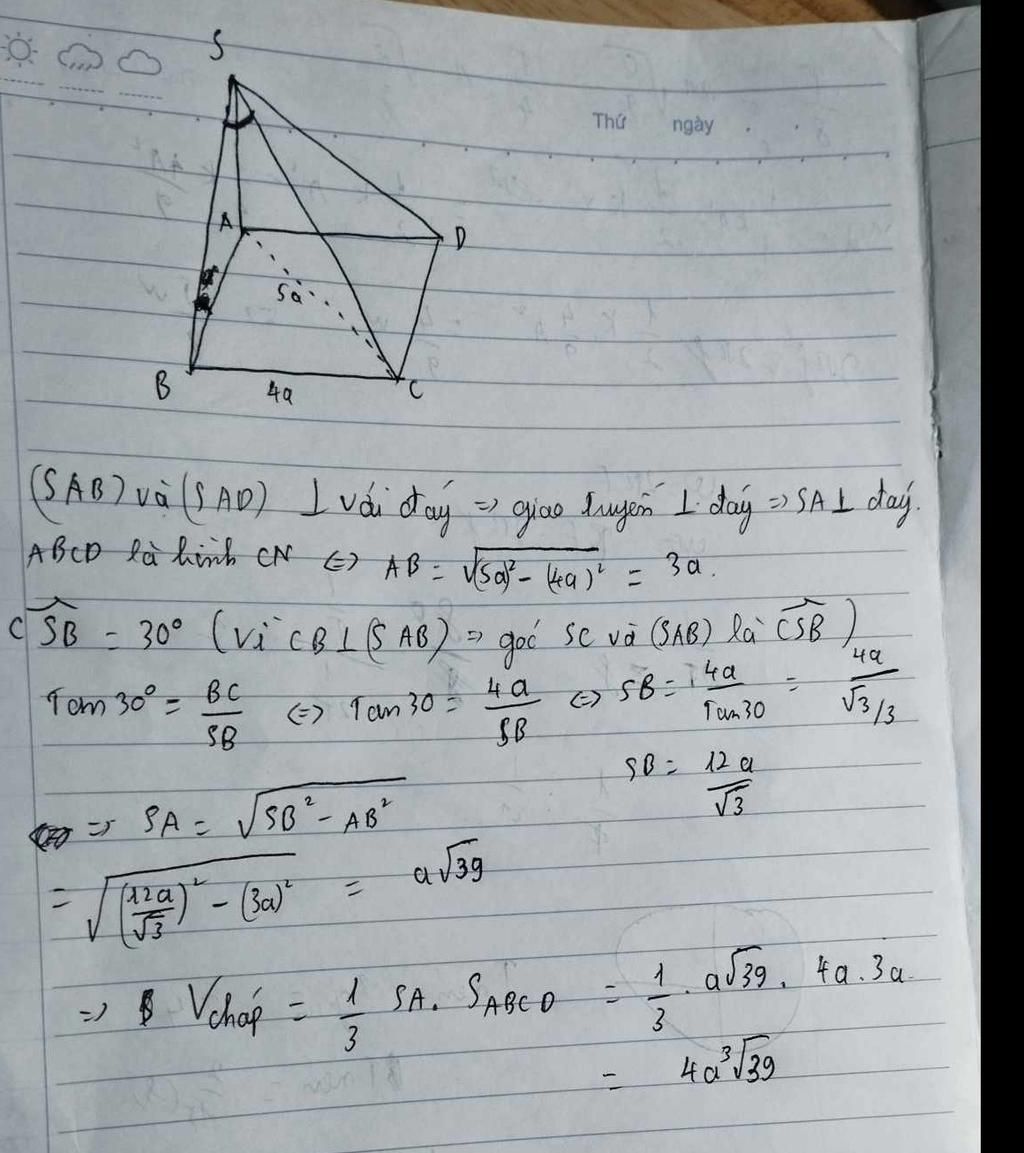 S
Thứ ngày
A
D
5a
B
4a
C
(SAB) và (SAD) ⊥ với đáy => giao tuyến ⊥ đáy => SA ⊥ đáy.
ABCD là hình CN <=> AB = √((5a)² - (4a)²) = 3a.
CSB = 30° (Vì CB ⊥ (SAB) => góc SC và (SAB) là CSB)
Tan 30° = BC/SB <=> Tan 30 = 4a/SB <=> SB = 4a/Tan30 = 4a/(√3/3)
SB = 12a/√3
=> SA = √(SB² - AB²)
= √((12a/√3)² - (3a)²) = a√39
=> Vchóp = 1/3 SA. SABCD = 1/3 . a√39 . 4a . 3a
= 4a³√39